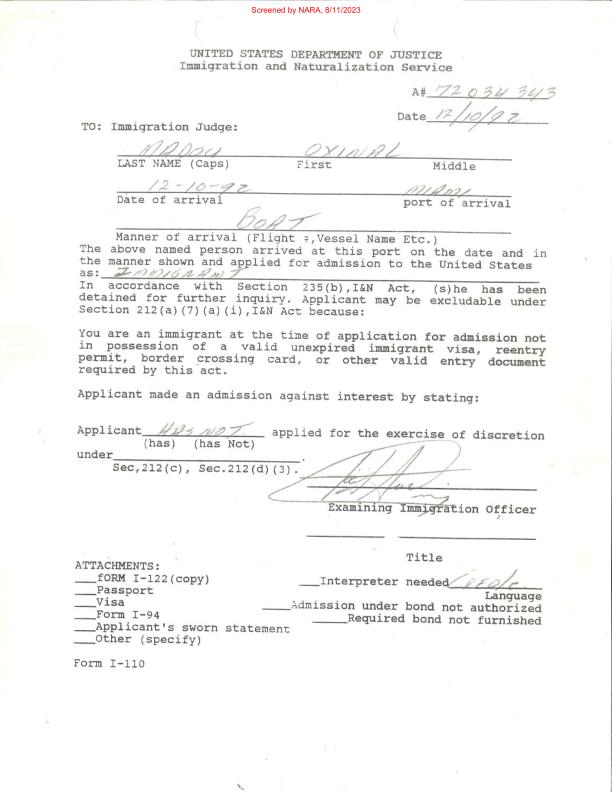 Screened by NARA, 8/11/2023
UNITED STATES DEPARTMENT OF JUSTICE
Immigration and Naturalization Service
A# 72 034 343
Date 12/10/92
TO: Immigration Judge:
MADOU OXINAL
LAST NAME (Caps) First Middle
12-10-92 MIAMI
Date of arrival port of arrival
BOAT
Manner of arrival (Flight #,Vessel Name Etc.)
The above named person arrived at this port on the date and in
the manner shown and applied for admission to the United States
as: IMMIGRANT
In accordance with Section 235(b),I&N Act, (s)he has been
detained for further inquiry. Applicant may be excludable under
Section 212(a)(7)(a)(i),I&N Act because:
You are an immigrant at the time of application for admission not
in possession of a valid unexpired immigrant visa, reentry
permit, border crossing card, or other valid entry document
required by this act.
Applicant made an admission against interest by stating:
Applicant HAS NOT applied for the exercise of discretion
(has) (has Not)
under .
Sec,212(c), Sec.212(d)(3).
Examining Immigration Officer
Title
ATTACHMENTS:
fORM I-122(copy)
Interpreter needed Creole
Passport
Language
Visa
Admission under bond not authorized
Form I-94
Required bond not furnished
Applicant's sworn statement
Other (specify)
Form I-110